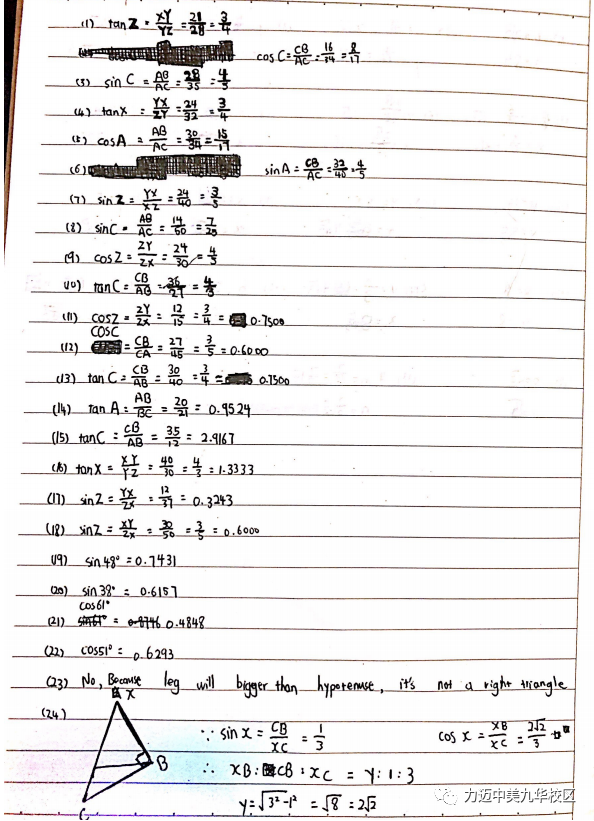 (1) tanZ = XY/YZ = 21/28 = 3/4
cosC = CB/AC = 16/34 = 8/17
(3) sinC = AB/AC = 28/35 = 4/5
(4) tanX = YZ/ZY = 24/32 = 3/4
(5) cosA = AB/AC = 30/34 = 15/17
(6) sinA = CB/AC = 32/40 = 4/5
(7) sinZ = YX/XZ = 24/40 = 3/5
(8) sinC = AB/AC = 14/50 = 7/25
(9) cosZ = ZY/ZX = 24/30 = 4/5
(10) tanC = CB/AB = 36/27 = 4/3
(11) cosZ = ZY/ZX = 12/15 = 3/4 = 0.7500
(12) cosC = CB/CA = 27/45 = 3/5 = 0.6000
(13) tanC = CB/AB = 30/40 = 3/4 = 0.7500
(14) tanA = AB/BC = 20/21 = 0.9524
(15) tanC = CB/AB = 35/12 = 2.9167
(16) tanX = XY/YZ = 40/30 = 4/3 = 1.3333
(17) sinZ = YX/ZX = 12/37 = 0.3243
(18) sinZ = XY/ZX = 30/50 = 3/5 = 0.6000
(19) sin48° = 0.7431
(20) sin38° = 0.6157
cos61°
(21) sin61° = 0.8746 0.4848
(22) cos51° = 0.6293
(23) No, Because leg will bigger than hypotenuse, it's not a right triangle
X
(24)
∵ sinx = CB/XC = 1/3 cosx = XB/XC = 2√2/3
B
∴ XB : CB : XC = Y : 1 : 3
C
Y = √3²-1² = √8 = 2√2
力迈中美九华校区